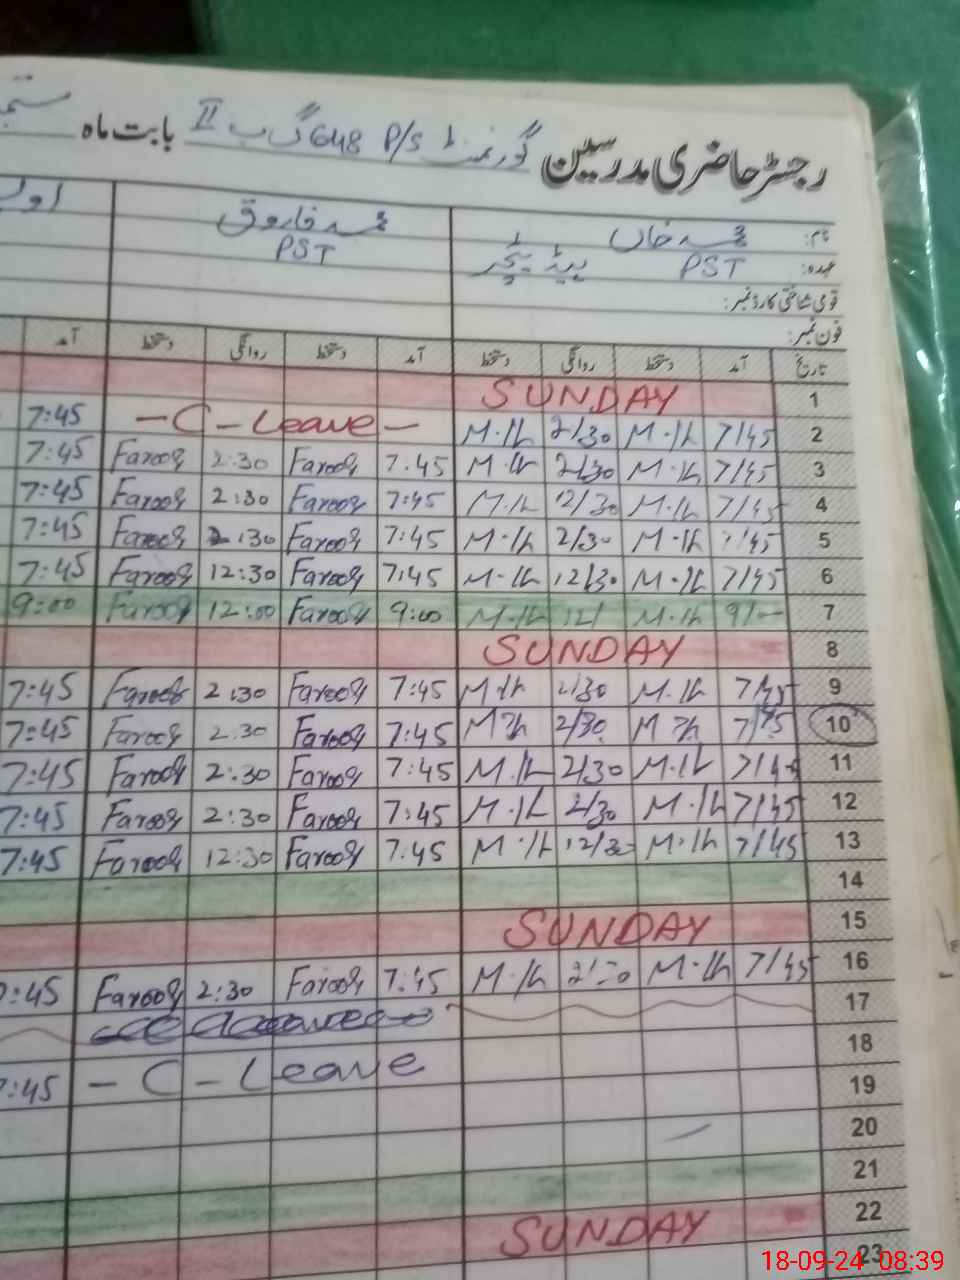 رجسٹر حاضری مدرسین گورنمنٹ P/S 648 گ ب II بابت ماہ
نام: محمد خاں محمد فاروق
عہدہ: PST ہیڈ ٹیچر PST
قومی شناختی کارڈ نمبر:
فون نمبر:
تاریخ آمد دستخط روانگی دستخط آمد دستخط روانگی دستخط آمد
1 SUNDAY
2 7/45 M.Ik 2/30 M.Ik - C - Leave - 7:45
3 7/45 M.Ik 2/30 M.Ik 7.45 Farooq 2:30 Farooq 7:45
4 7/45 M.Ik 12/30 M.Ik 7:45 Farooq 2:30 Farooq 7:45
5 7/45 M.Ik 2/30 M.Ik 7:45 Farooq 2:30 Farooq 7:45
6 7/45 M.Ik 12/30 M.Ik 7:45 Farooq 12:30 Farooq 7:45
7 9/-- M.Ik 12/ M.Ik 9:00 Farooq 12:00 Farooq 9:00
8 SUNDAY
9 7/45 M.Ik 2/30 M.Ik 7:45 Farooq 2:30 Farooq 7:45
10 7/45 2/30 7:45 Farooq 2.30 Farooq 7:45
11 M.Ik 2/30 M.Ik 7:45 Farooq 2:30 Farooq 7:45
12 7/45 M.Ik 2/30 M.Ik 7:45 Farooq 2:30 Farooq 7:45
13 7/45 M.Ik 12/30 M.Ik 7.45 Farooq 12:30 Farooq 7:45
14
15 SUNDAY
16 7/45 M.Ik 2/30 M.Ik 7:45 Farooq 2:30 Farooq 7:45
17
18
19 - C - Leave 7:45
20
21
22 SUNDAY
23
18-09-24 08:39